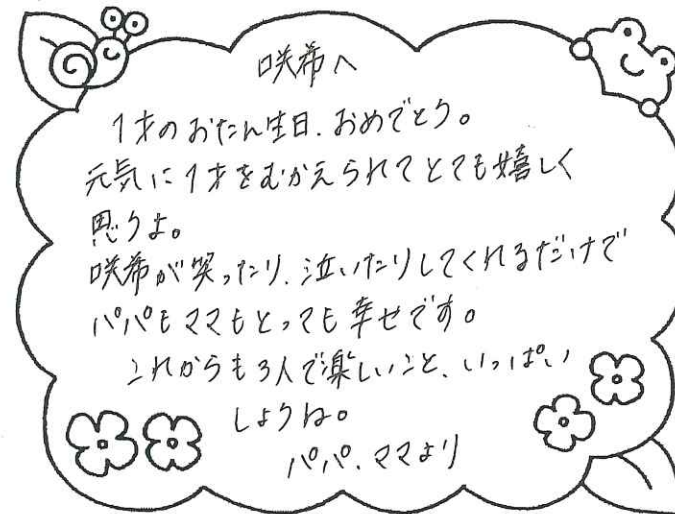 咲希へ
1才のおたん生日、おめでとう。
元気に1才をむかえられてとても嬉しく
思うよ。
咲希が笑ったり、泣いたりしてくれるだけで
パパもママもとっても幸せです。
これからも3人で楽しいこと、いっぱい
しようね。
パパ、ママより